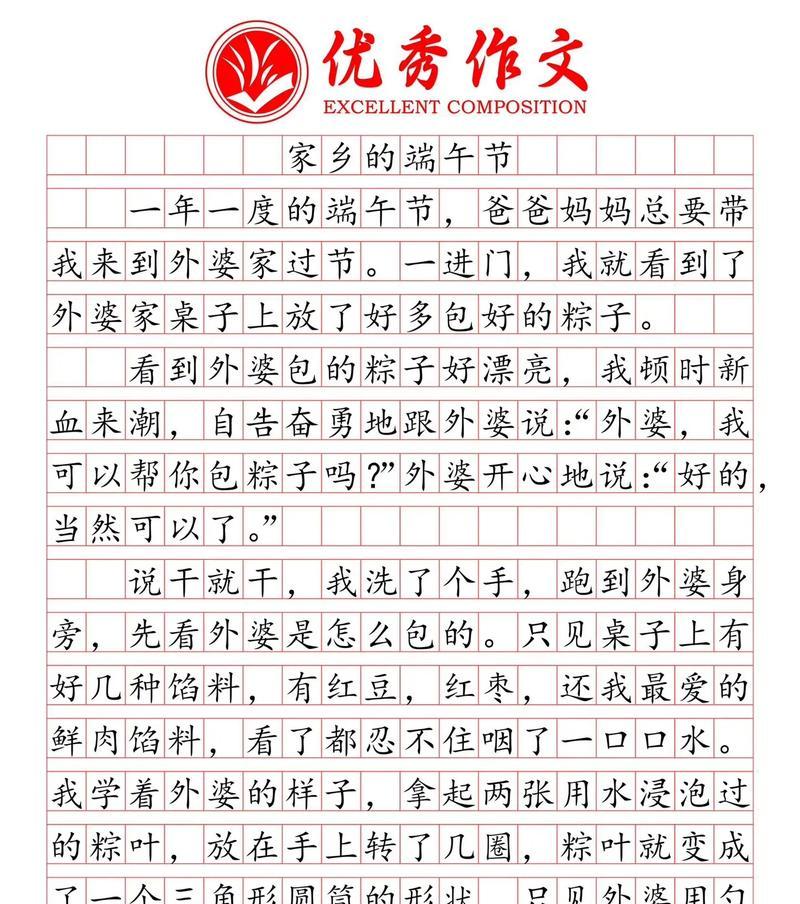 优秀作文
EXCELLENT COMPOSITION
家乡的端午节
一年一度的端午节，爸爸妈妈总要带
我来到外婆家过节。一进门，我就看到了
外婆家桌子上放了好多包好的粽子。
看到外婆包的粽子好漂亮，我顿时新
血来潮，自告奋勇地跟外婆说：“外婆，我
可以帮你包粽子吗？”外婆开心地说：“好的，
当然可以了。”
说干就干，我洗了个手，跑到外婆身
旁，先看外婆是怎么包的。只见桌子上有
好几种馅料，有红豆，红枣，还我最爱的
鲜肉馅料，看了都忍不住咽了一口口水。
我学着外婆的样子，拿起两张用水浸泡过
的粽叶，放在手上转了几圈，粽叶就变成
了一个三角形圆筒的形状，只见外婆用勺